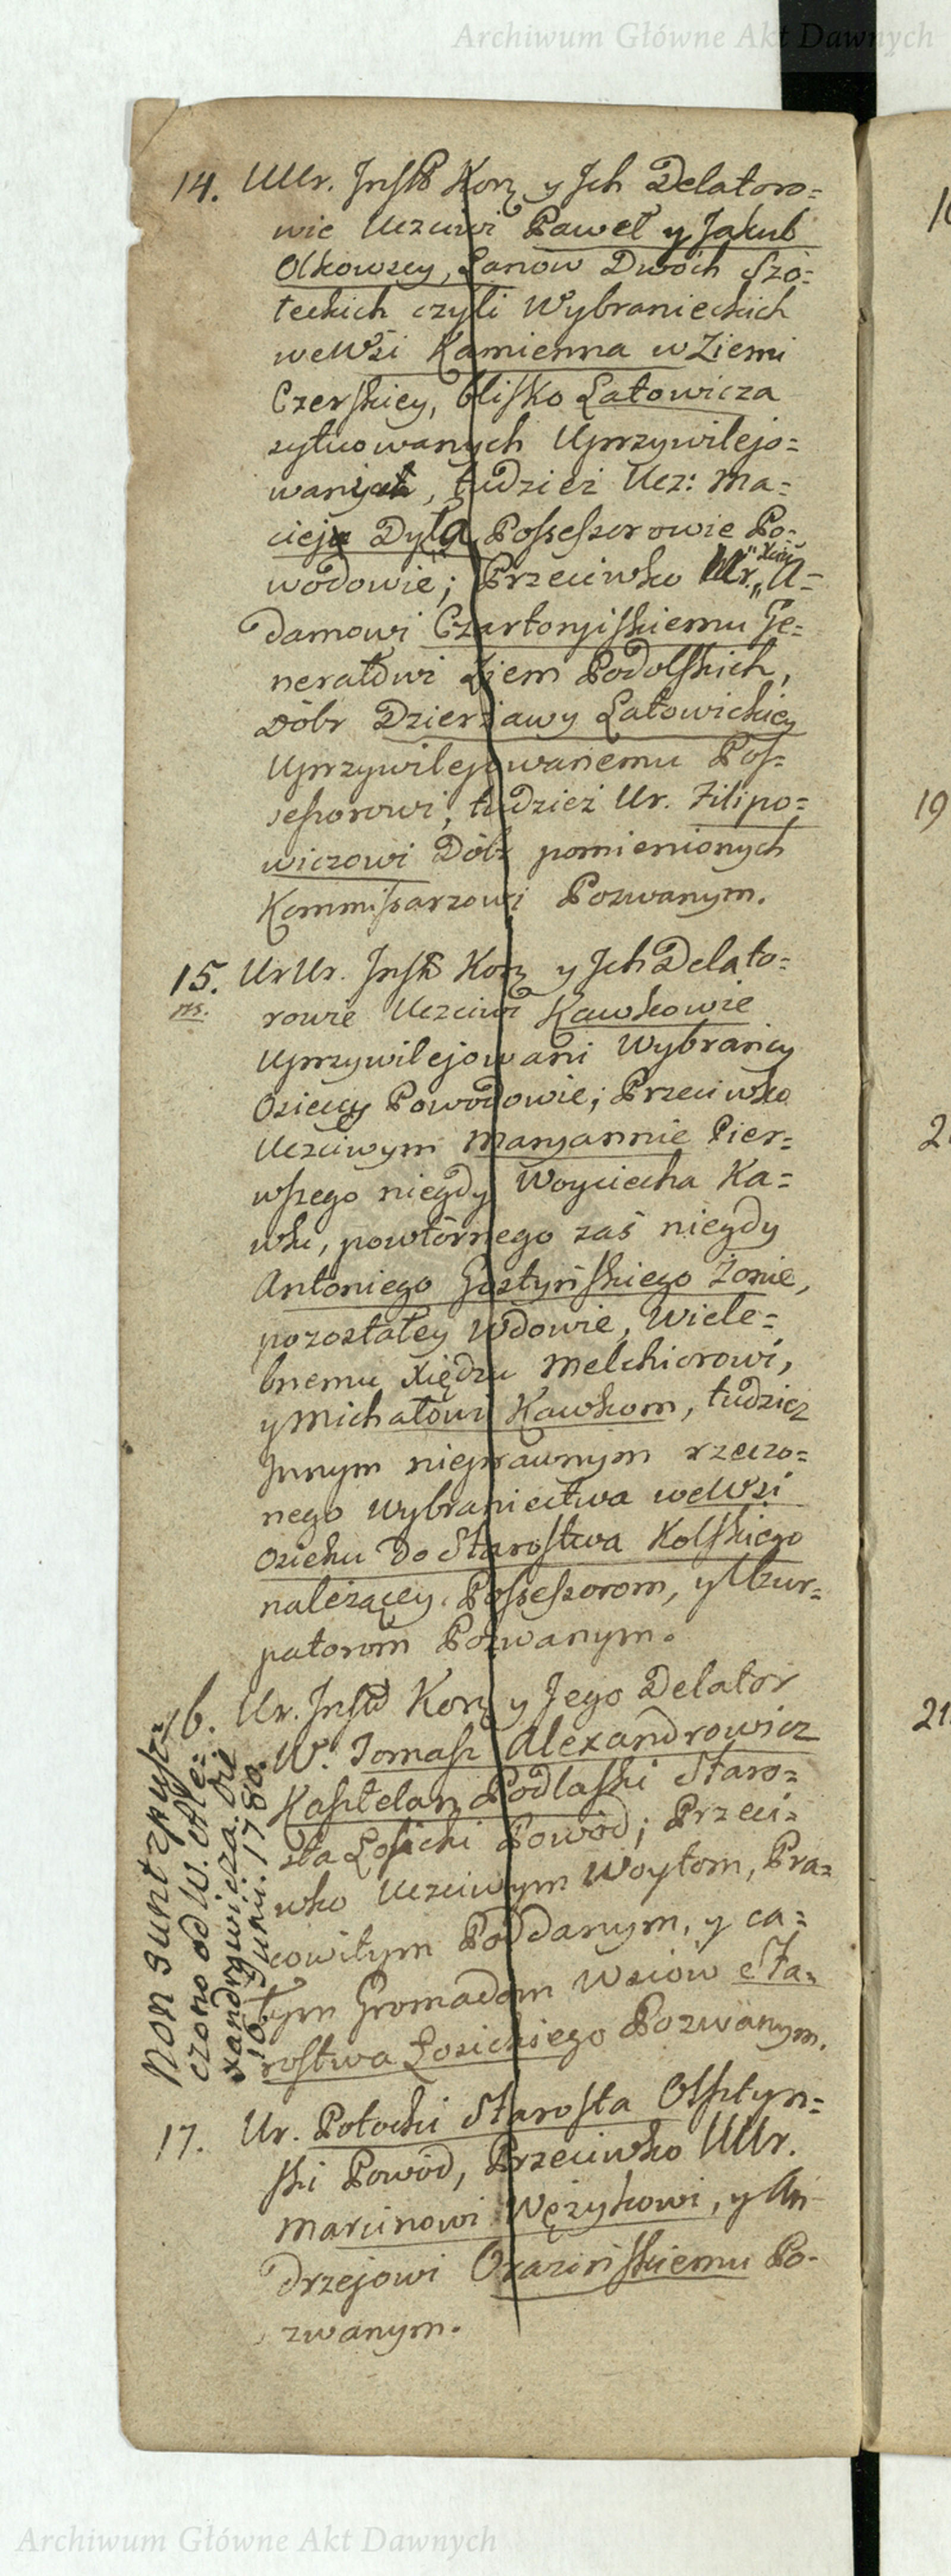 Archiwum Główne Akt Dawnych
14. UUr. Inst Kor: y Ich Delatoro=
wie Uczciwi Paweł y Jakub
Olkowscy, Łanow Dwóch Szo=
łeckich czyli Wybranieckich
we Wsi Kamienna w Ziemi
Czerskiey, blisko Łatowicza
sytuowanych Uprzywilejo=
wanych, tudzież Ucz: Ma=
cieja Dyła Possessorowie Po=
wodowie; Przeciwko Ur. Xciu A=
damowi Czartoryiskiemu Ge=
nerałowi Ziem Podolskich,
Dóbr Dzierżawy Łatowickiey
Uprzywilejowanemu Pos=
sessorowi, tudzież Ur. Filipo=
wiczowi Dóbr pomienionych
Kommissarzowi Pozwanym.
15. Ur Ur. Inst Kor: y Ich Delato=
ns. rowie Uczciwi Kawkowie
Uprzywilejowani Wybrańcy
Osieccy Powodowie; Przeciwko
Uczciwym Maryannie Pier=
wszego niegdy Woyciecha Ka=
wki, powtórnego zaś niegdy
Antoniego Gostyńskiego Żonie,
pozostałey Wdowie, Wiele=
bnemu Xiędzu Melchiorowi,
y Michałowi Kawkom, tudzież
Innym nieprawnym rzeczo=
nego Wybraniectwa we Wsi
Osieku do Starostwa Kolskiego
należącey Possessorom, y Uzur=
patorom Pozwanym.
16. Ur. Inst Kor: y Jego Delator
W. Tomasz Alexandrowicz
Kasztelan Podlaski Staro=
sta Łosicki Powód; Przeci=
wko Uczciwym Woytom, Pra=
cowitym Poddanym, y ca=
łym Gromadom Wsiow Sta=
rostwa Łosickiego Pozwanym.
Non sunt zpusz=
czono od W. Ale=
xandrowicza. Die
16. Junii. 1780.
17. Ur. Potocki Starosta Olsztyn=
ski Powód, Przeciwko UUr.
Marcinowi Wężykowi, y An
drzejowi Orazińskiemu Po-
zwanym.
19
21
Archiwum Główne Akt Dawnych